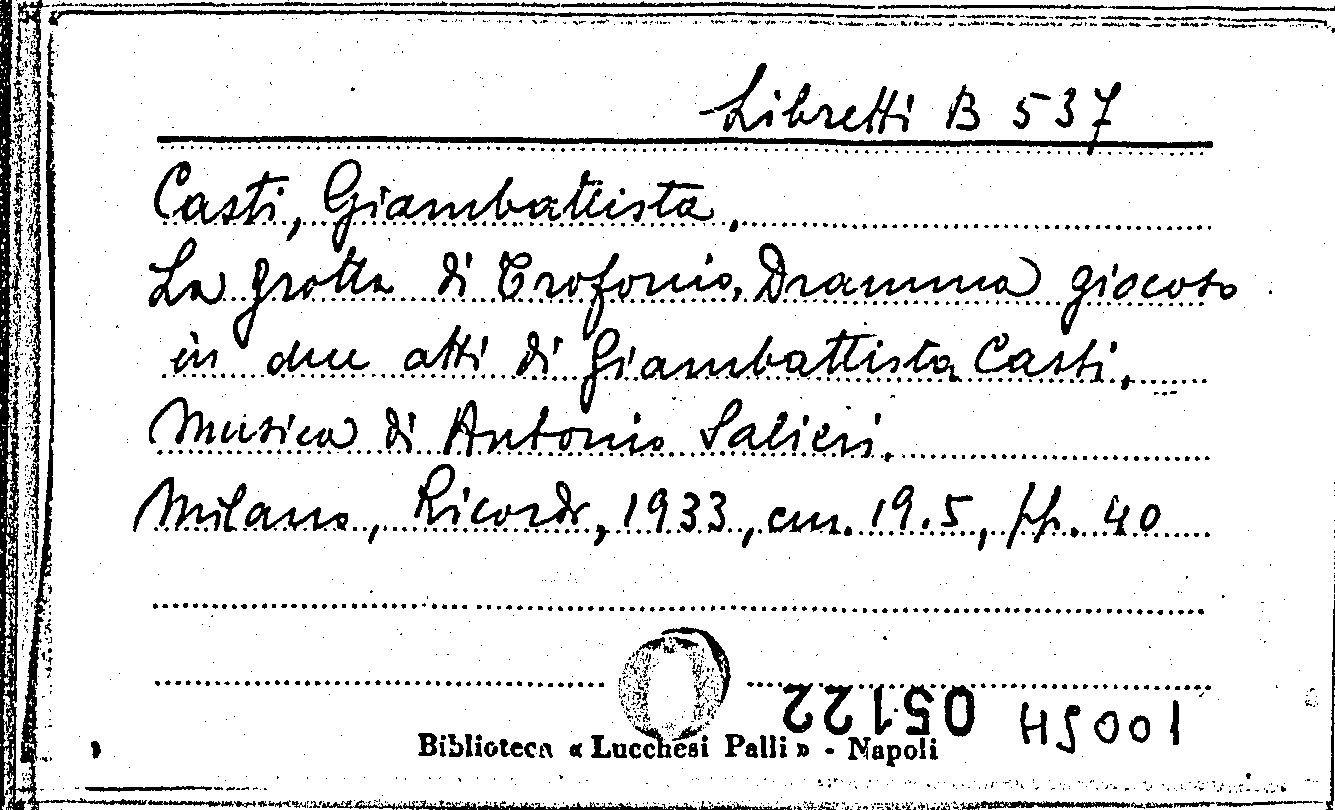 Libretti B 537
Casti, Giambattista.
La grotta di Trofonio. Dramma giocoso
in due atti di Giambattista Casti.
Musica di Antonio Salieri.
Milano, Ricordi, 1933, cm. 19.5, pp. 40
05122
Biblioteca « Lucchesi Palli » - Napoli